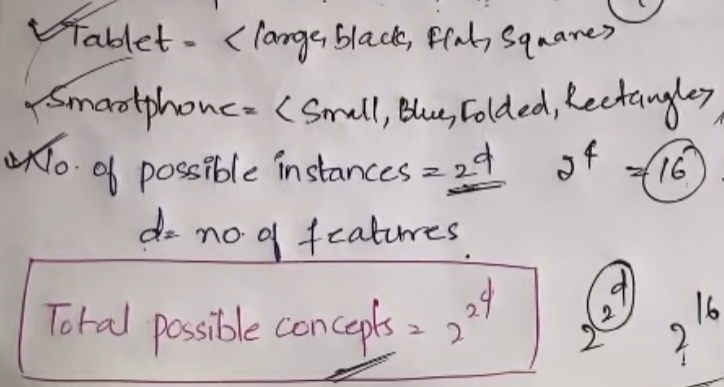 Tablet = <large, black, Flat, Square>
Smartphone = <Small, Blue, Folded, Rectangle>
No. of possible instances = 2^d 2^4 = 16
d = no. of features.
Total possible concepts = 2^2^d 2^2^d 2^16